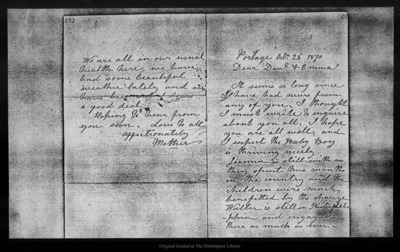 Portage Oct. 23d 1890
Dear Dan'l & Emma
It seems so long since
I have had news from
any of you, I thought
I must write to inquire
about you all. I hope
you are all well and
I expect the Baby Boy
thriving nicely
Joanna is still with us
They spent two months
in the country and the
children were much
benefitted by the change
Walter is still in Philadel
phia and enjoys
there as much as ever.
We are all in our usual
health here, we have
had some beautiful
weather lately and
a good deal.
Hoping to hear from
you soon. Love to all
affectionately
Mother
Original located at The Huntington Library